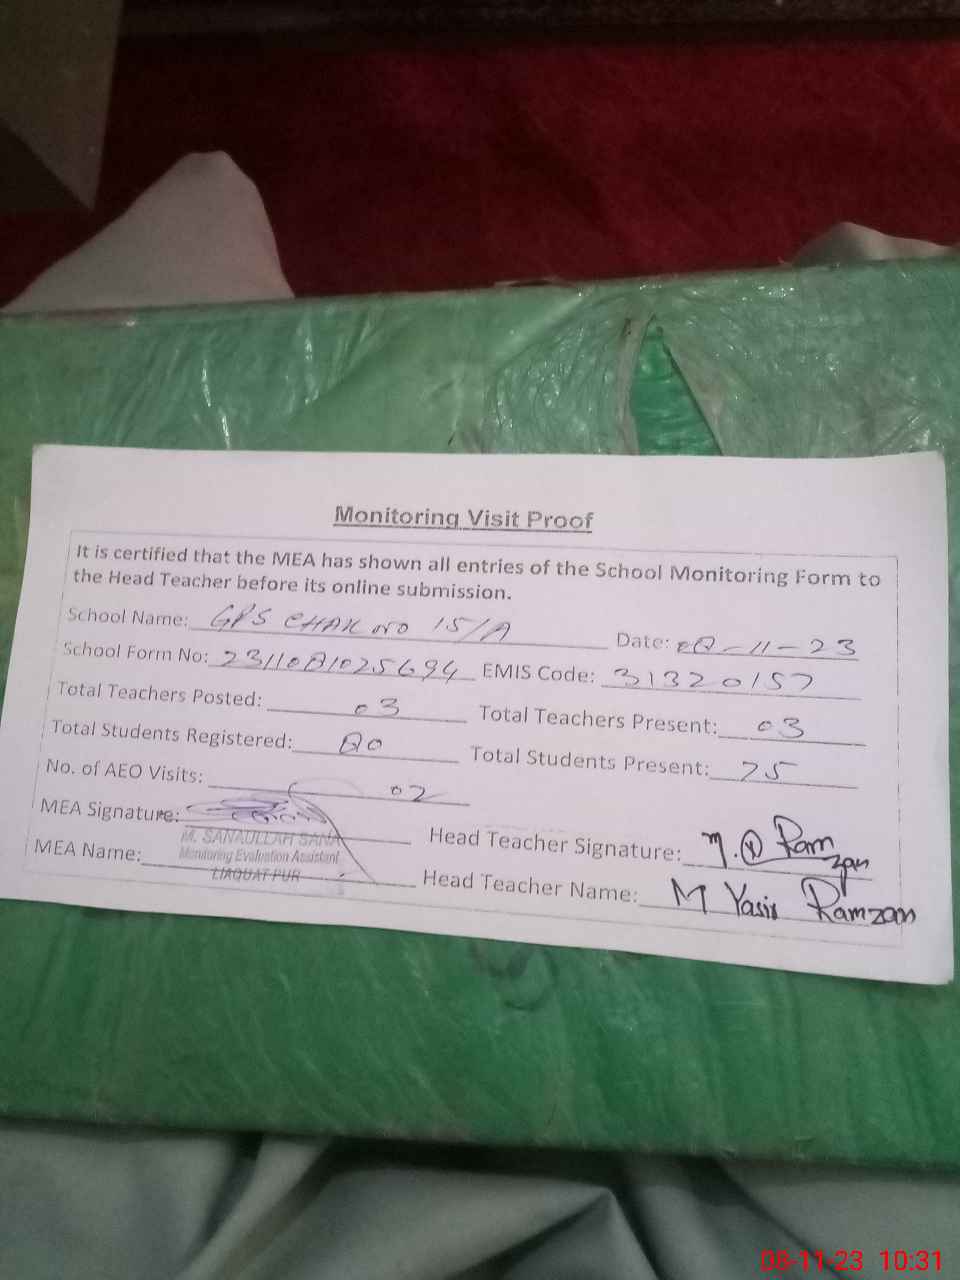 Monitoring Visit Proof
It is certified that the MEA has shown all entries of the School Monitoring Form to
the Head Teacher before its online submission.
School Name: GPS CHAK NO 15/A Date: 08-11-23
School Form No: 2311081025694 EMIS Code: 31320157
Total Teachers Posted: 03 Total Teachers Present: 03
Total Students Registered: 80 Total Students Present: 75
No. of AEO Visits: 02
MEA Signature: Head Teacher Signature: M. Y Ramzan
M. SANAULLAH SANA
MEA Name: Monitoring Evaluation Assistant Head Teacher Name: M Yasir Ramzan
LIAQUAT PUR
08-11-23 10:31